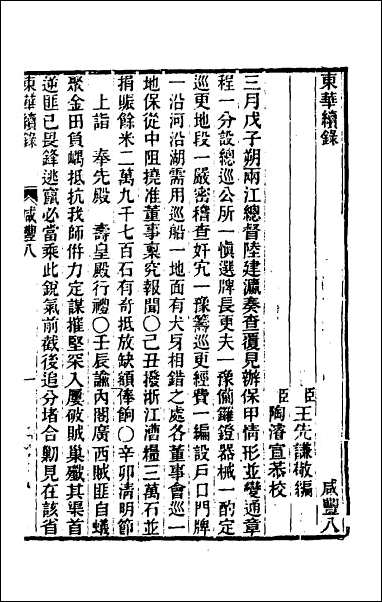 東華續錄
咸豐八
臣王先謙敬編
臣陶濬宣恭校
三月戊子朔兩江總督陸建瀛奏查覆見辦保甲情形並變通章
程一分設總巡公所一愼選牌長更夫一豫備鑼鐙器械一酌定
巡更地段一嚴密稽查奸宄一豫籌巡更經費一編設戶口門牌
一沿河沿湖需用巡船一地面有犬牙相錯之處各董事會巡一
地保從中阻撓准董事稟究報聞〇己丑撥浙江漕糧三萬石並
捐賑餘米二萬九千七百石有奇抵放缺額俸餉〇辛卯淸明節
上詣　奉先殿　壽皇殿行禮〇壬辰諭內閣廣西賊匪自蟻
聚金田負嵎抵抗我師倂力定謀摧堅深入屢破賊巢殲其渠首
逆匪已畏鋒逃竄必當乘此銳氣前截後追分堵合勦見在該省
東華續錄
咸豐八
一